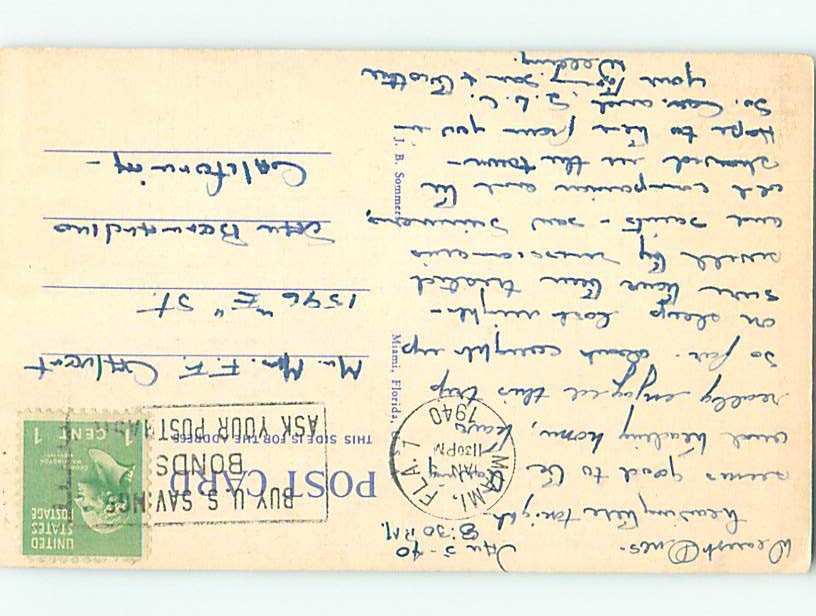 Jan 5-40
8:30 P.M.
Dearest Ones-
Leaving here tonight
seems good to be
and heading home, have
really enjoyed this trip
so far. Dad caught up
on sleep last night -
sure have been treated
swell by musicians
and saints - saw
old companion and he
showed us the town -
Hope to hear from you in
So. Cal. and S.L.C.
your loving son & brother
J. B. Sommers
Miami, Florida,
MIAMI, FLA. 1
JAN
11 30 PM
1940
BUY U S SAVINGS
BONDS
ASK YOUR POSTMASTER
POST CARD
THIS SIDE IS FOR THE ADDRESS
UNITED
STATES
POSTAGE
1 CENT 1
Mr. Mrs. F. F.
1596 "E" St.
San Bernardino
California -